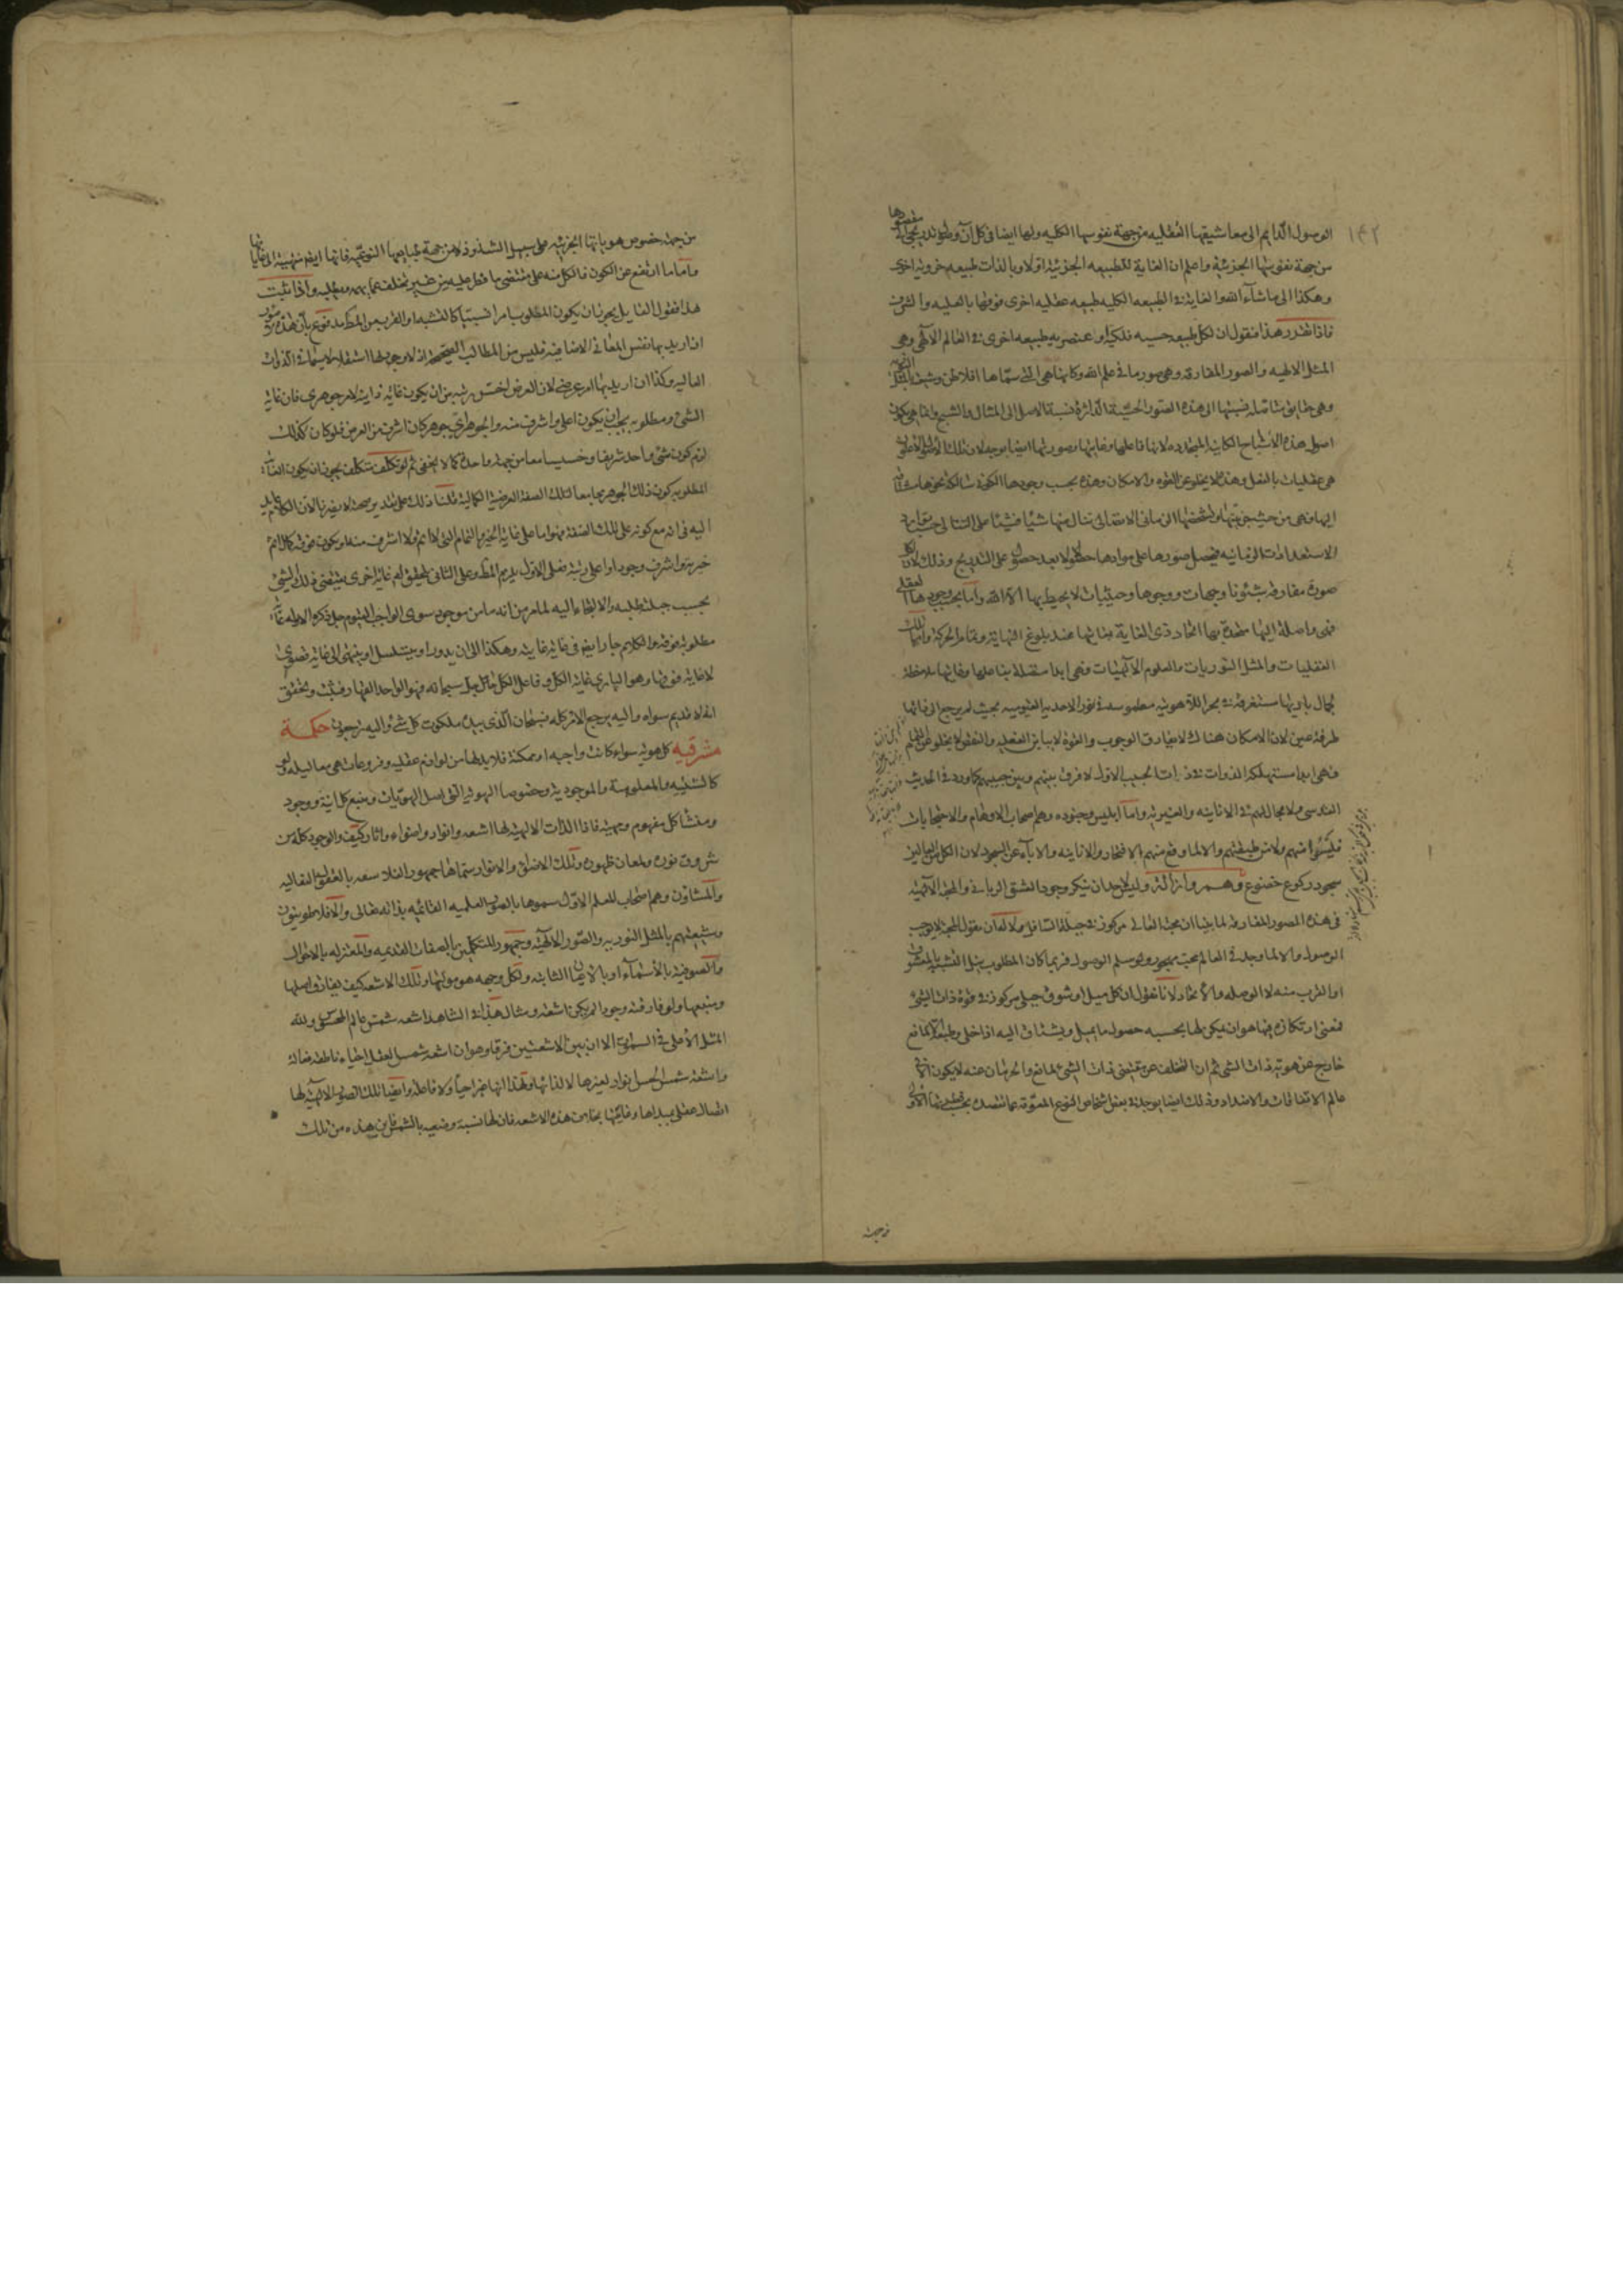 ١٤٢
الوصول الدايم الى معاشيقها العقليه من جهة نفوسها الكليه ولها ايضا فى كل آن وصول تدريجى الى مقصودها
من جهة نفوسها الجزئية واعلم ان الغاية للطبيعه الجزئية اولا وبالذات طبيعه جزوية اخرى
وهكذا الى ما شآء الله والغاية فى الطبيعه الكليه طبيعه عقليه اخرى فوقها بالعليه والشرف
فاذا تقرر هذا فنقول ان لكل طبيعه حسيه فلكية او عنصريه طبيعه اخرى فى العالم الالهى وهى
المثل الالهيه والصور المفارقه وهى صور ما فى علم الله وكانها هى التى سماها افلاطن وشيعته بالمثل النوريه
وهى حقايق متاصله نسبتها الى هذه الصور الحسية الداثرة نسبة الاصل الى المثال والشبح وانما هى يكون
اصول هذه الاشباح الكاينة المتجدده لانها فاعلها وغايتها وصورتها ايضا بوجه لان تلك
هى عقليات بالفعل وهذه لا يخلو عن القوه والامكان وهذه بحسب وجودها الكونى سالكة نحوها
اليها وهى من حيث جزئيتها وتشخصها الزمانى الاتصالى تنال منها شيئا فشيئا على التتالى حسب توارد
الاستعدادات الزمانيه فيحصل صورها على موادها حصولا بعد حصول على التدريج وذلك لان لكل
صورة مفارقه شئونا وجهات ووجوها وحيثيات لا يحيط بها الا الله واما بحسب وجودها العقلى
فهى واصلة اليها متحدة بها اتحاد ذى الغاية بغايتها عند بلوغ النهاية وتمام الحركة واما تلك
العقليات والمثل النوريات والعلوم الالهيات فهى ابدا متصلة بفاعلها وغايتها ملاحظة
لجمال باريها مستغرقة فى بحر اللاهوتيه مطموسه فى نور الاحديه القيوميه بحيث لم يرجع الى ذاتها
طرفة عين لان الامكان هناك لا يفارق الوجوب والقوة لا يباين الفعليه والنقص لا يخلو عن التمام
فهى ابدا مستهلكه الذوات فى ذات الحبيب الاول لا فرق بينهم وبين حبيبهم كما ورد فى الحديث
القدسى فلا مجال لهم فى الانانيه والغيريه واما ابليس وجنوده وهم اصحاب الاوهام والاحتجابات
فليسوا منهم ولا من طبقتهم والا لما وقع منهم الافتخار والانانيه والاباء عن السجود لان الكل من العالين
سجود ركوع خضوع وهم وازالة ولعلك ان تنكر وجود العشق الربانى والمحبة الالهيه
فى هذه الصور المفارقة لما بينا ان محبة العالى مركوز فى جبلة السافل
الوصول والا لما وجد فى العالم محب مهجور ولو سلم الوصول فربما كان المطلوب نيل التشبه بالمعشوق
او القرب منه لا الوصله والاتحاد لانا نقول ان كل ميل او شوق جبلى مركوز فى قوة ذات الشى
فمعنى ارتكازه فيها هو ان يكون لها بحسبه حصول ما يميل ويشتاق اليه اذا خلى وطبعه الا لمانع
خارج عن هويته ذات الشى ثم ان التخلف عن مقتضى ذات الشى لمانع والحرمان عنه لا يكون الا فى
عالم الاتفاقات والاضداد وذلك ايضا يوجد فى بعض اشخاص النوع المعوقة عما تقصده
من جهة
من جهة خصوص هوياتها الجزئية على سبيل الشذوذ لا من جهة طبايعها النوعيه فانها ايضا منتهية الى غاياتها
واما ما ارتفع عن الكون فالكل منه على مقتضى ما فطر عليه من غير تخلف واذا ثبت
هذا فقول القايل يجوز ان يكون المطلوب امرا نسبيا كالتشبه او القرب من المط مدفوع بان هذه الامور
ان اريد بها نفس المعانى الاضافيه فليس من المطالب الصحيحه اذ لا وجود لها استقلالا سيما فى الذوات
العاليه وكذا ان اريد بها امر عرضى لان العرض اخس رتبه من ان يكون غاية ذاتية لامر جوهرى فان غاية
الشى ومطلوبه يجب ان يكون اعلى واشرف منه والجوهر اى جوهر كان اشرف من العرض فلو كان كذلك
لزم كون شى واحد شريفا وخسيسا معا من جهة واحدة كما لا يخفى ثم لو تكلف متكلف يجوز ان يكون الغاية
المطلوبه كون ذلك الجوهر مجامعا لتلك الصفة العرضية الكمالية قلنا ذلك على تقدير صحته لا يضرنا لان الكلام عايد
اليه فى انه مع كونه على تلك الصفة فهو اما على غاية الخير والتمام التى لا اتم ولا اشرف منه او يكون فوقه كمال اتم
خيرية واشرف وجودا واعلى رتبة فعلى الاول يلزم المط وعلى الثانى يتحقق له غاية اخرى يقتضى ذلك الشى
بحسب جبلته طلبه والالتجاء اليه لما مر من انه ما من موجود سوى الواجب القيوم جل ذكره الا وله غاية
مطلوبة فوقه والكلام جار ايضا فى غاية غايته وهكذا الى ان يدور او يتسلسل او ينتهى الى غاية قصوى
لا غاية فوقها وهو البارى غاية الكل وفاعل الكل سبحانه فهو الواحد القهار فثبت وتحقق
انه لا قديم سواه واليه يرجع الامر كله فسبحان الذى بيده ملكوت كل شئ واليه ترجعون حكمة
مشرقيه كل هويه سواء كانت واجبه او ممكنة فلا بد لها من لوازم عقليه وفروعات هى معاليله
كالشيئيه والمعلوميه والموجوديه وخصوصا الهوية التى اصل الهويات ومنبع كل انية ووجود
ومنشا كل مفهوم ومهيه فاذا الذات الالهية لها اشعه وانوار واضواء واثار كيف والوجود كله من
شروق نوره ولمعان ظهوره وتلك الاضواء والانوار سماها جمهور الفلاسفه بالعقول الفعاليه
والمشاؤن وهم اصحاب المعلم الاول سموها بالصور العلميه القائمه بذاته تعالى والافلاطونيون
وشيعتهم بالمثل النوريه والصور الالهية وجمهور المتكلمين بالصفات القديمه والمعتزله بالاحوال
والصوفية بالاسماء او بالاعيان الثابته ولكل وجهه هو موليها وتلك الاشعه كيف يفارق اصلها
ومنبعها ولو فارقته وجودا لم يكن اشعة ومثال هذا فى الشاهد اشعه شمس عالم المحسوس ولله
المثل الاعلى فى السموات الا ان بين الاشعتين فرقا وهو ان اشعه شمس العقل احياء ناطقه فعالة
واشعة شمس الحس انوار لغيرها لا لذاتها ولهذا انها غير احياء ولا فاعله وايضا تلك الصور الالهية لها
اتصال عقلى بمبداها وغايتها بخلاف هذه الاشعه فان لها نسبة وضعيه بالشمس فاين هذه من تلك